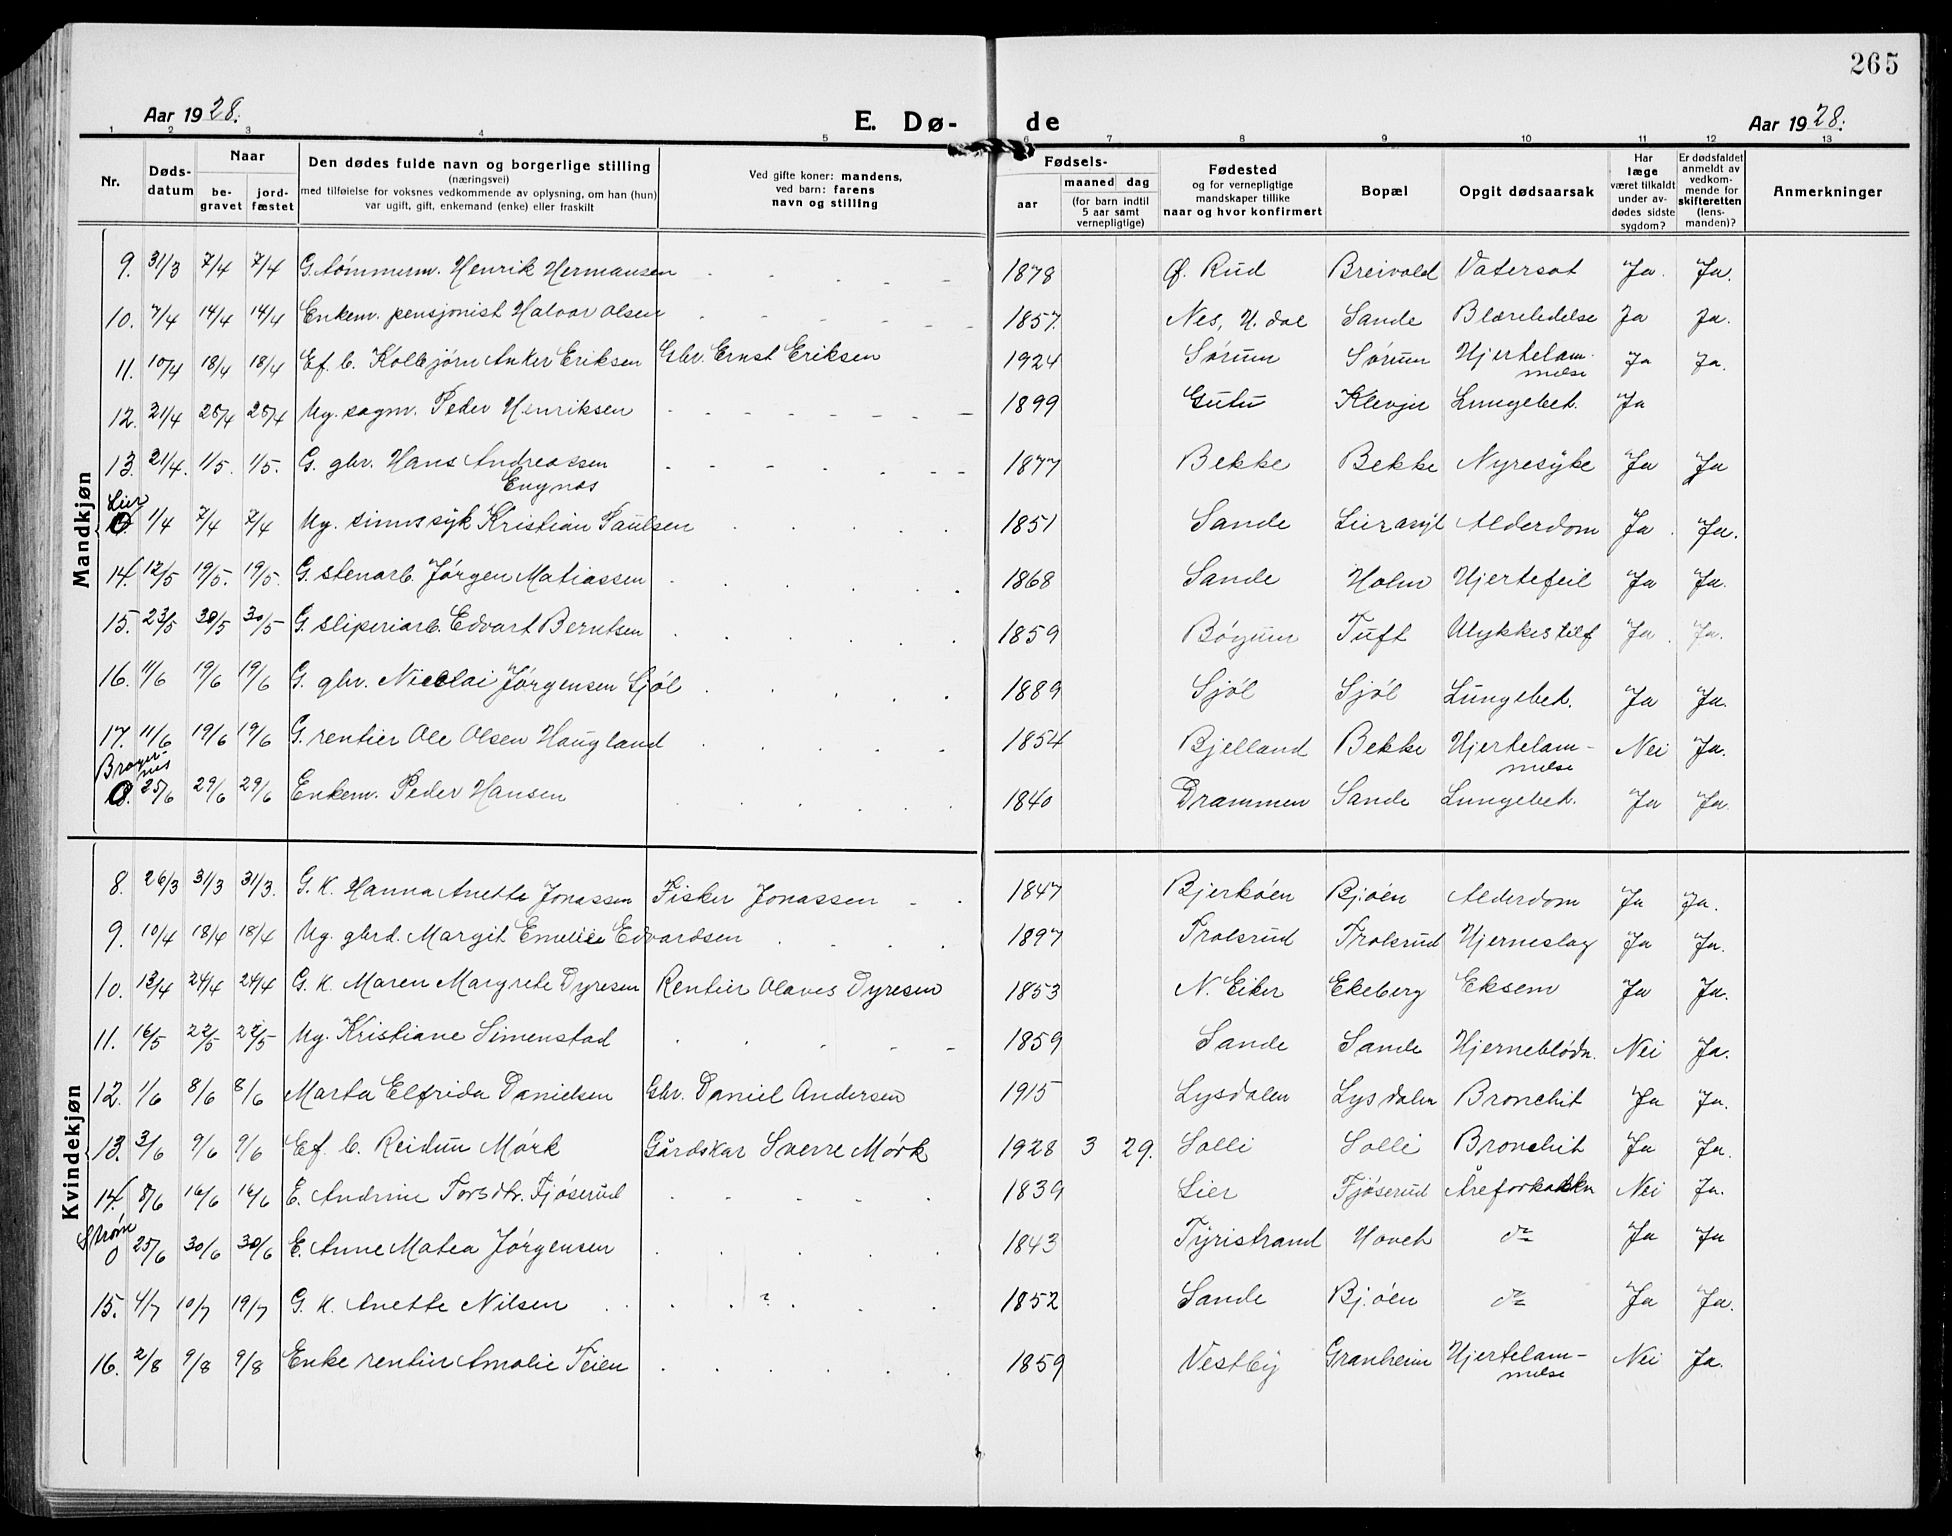 265
Aar 1928. E. Dø- de Aar 1928.
1 2 3 4 5 6 7 8 9 10 11 12 13
Nr. Døds-datum Naar be-gravet jord-fæstet Den dødes fulde navn og borgerlige stilling (næringsvei) med tilføielse for voksnes vedkommende av oplysning, om han (hun) var ugift, gift, enkemand (enke) eller fraskilt Ved gifte koner: mandens, ved barn: farens navn og stilling Fødsels- aar maaned dag (for barn indtil 5 aar samt vernepligtige) Fødested og for vernepligtige mandskaper tillike naar og hvor konfirmert Bopæl Opgit dødsaarsak Har læge været tilkaldt under av-dødes sidste sygdom? Er dødsfaldet anmeldt av vedkom-mende for skifteretten (lens-manden)? Anmerkninger
Mandkjøn
9. 31/3 7/4 7/4 G. tømmerm. Henrik Hermansen 1878 Ø. Rud Breivold Vatersot Ja. Ja.
10. 7/4 14/4 14/4 Enkem. pensjonist Halvor Olsen 1857 Nes, H. dal Sande Blæreledelse Ja Ja.
11. 10/4 18/4 18/4 Ef. b. Kolbjørn Anker Eriksen Gbr. Ernst Eriksen 1924 Sørum Sørum Hjertelam-melse Ja Ja.
12. 21/4 25/4 25/4 Ug. sagm. Peder Henriksen 1899 Gutu Klevjer Lungebet. Ja
13. 21/4. 1/5. 1/5. G. gbr. Hans Andreassen 1877 Bekke Bekke Nyresyke Ja Ja
Engnæs
Lier 0. 1/4 7/4 7/4 Ug. sinnssyk Kristian Paulsen 1851 Sande Lier asyl Alderdom Ja. Ja.
14. 12/5 19/5. 19/5. G. stenarb. Jørgen Matiassen 1868 Sande Holm Hjertefeil Ja Ja.
15. 23/5 30/5 30/5 G. sliperiarb. Edvart Berntsen 1859 Bøgum Tuft Ulykkestilf Ja. Ja.
16. 11/6 19/6 19/6 G. gbr. Nicolai Jørgensen Sjøl 1889 Sjøl Sjøl Lungebet. Ja Ja.
17. 11/6 19/6 19/6 G. rentier Ole Olsen Haugland 1854 Bjelland Bekke Hjertelam-melse Nei Ja.
Brager-nes 0. 25/6 29/6 29/6 Enkem. Peder Hansen 1840 Drammen Sande Lungebet. Ja Ja.
Kvindekjøn
8. 26/3 31/3 31/3. G. K. Hanna Anette Jonassen Fisker Jonassen 1847 Bjerkøen Bjøen Alderdom Ja Ja.
9. 10/4 18/4 18/4 Ug. gbrd. Margit Emelie Edvardsen 1897 Trolsrud Trolsrud Hjerneslag Ja Ja.
10. 13/4 24/4 24/4 G. K. Maren Margrete Dyresen Rentier Olaves Dyresen 1853 N. Eiker Ekeberg Eksem Ja Ja.
11. 16/5 22/5 22/5 Ug. Kristiane Simenstad 1859 Sande Sande Hjerneblødn. Nei Ja.
12. 1/6 8/6 8/6 Marta Elfrida Danielsen Gbr. Daniel Andersen 1915 Lysdalen Lysdalen Bronchit Ja Ja.
13. 3/6 9/6 9/6 Ef. b. Reidun Mørk Gårdskar Sverre Mørk 1928 3 29. Solli Solli Bronchit Ja Ja.
14. 8/6 16/6 16/6 E. Andrine Torsdtr. Fjøserud 1839 Lier Fjøserud Åreforkalkn Nei Ja.
Strøm 0 25/6 30/6 30/6 E. Anne Matea Jørgensen 1843 Tyristrand Hovet do Ja Ja
15. 4/7 10/7 19/7 G. K. Anette Nilsen ? 1852 Sande Bjøen do Ja Ja.
16. 2/8 9/8 9/8 Enke rentier Amalie Teien 1859 Vestby Granheim Hjertelam-melse Nei Ja.